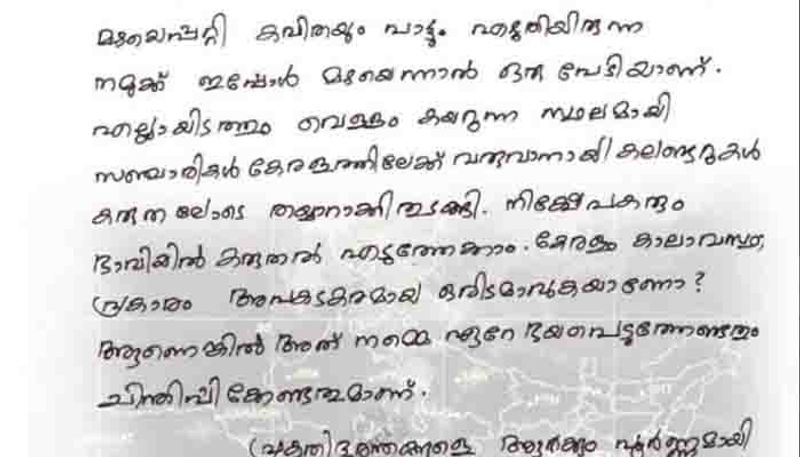 മഴയെപ്പറ്റി കവിതയും പാട്ടും എഴുതിയിരുന്ന
നമുക്ക് ഇപ്പോൾ മഴയെന്നാൽ ഒരു പേടിയാണ്.
എല്ലായിടത്തും വെള്ളം കയറുന്ന സ്ഥലമായി
സഞ്ചാരികൾ കേരളത്തിലേക്ക് വരുവാനായി കലണ്ടറുകൾ
കരുതലോടെ തയ്യാറാക്കി തുടങ്ങി. നിക്ഷേപകരും
ഭാവിയിൽ കരുതൽ എടുത്തേക്കാം. കേരളം കാലാവസ്ഥ
പ്രകാരം അപകടകരമായ ഒരിടമാവുകയാണോ?
ആണെങ്കിൽ അത് നമ്മെ ഏറെ ഭയപ്പെടുത്തേണ്ടതും
ചിന്തിപ്പിക്കേണ്ടതുമാണ്.
പ്രകൃതിദുരന്തങ്ങളെ ആർക്കും പൂർണ്ണമായി